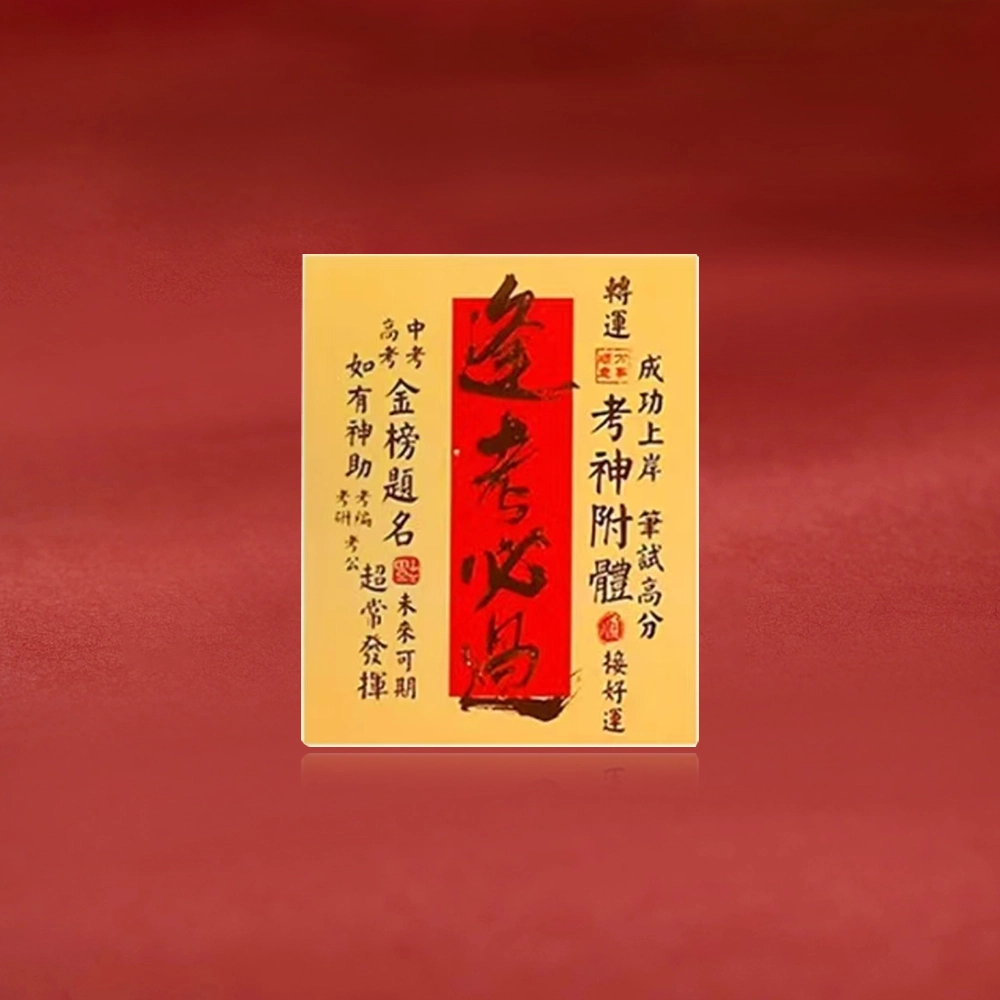 成功上岸 筆試高分
轉運
考神附體
順
接好運
逢考必過
中考
高考
金榜題名
未來可期
如有神助
考編
考研
考公
超常發揮